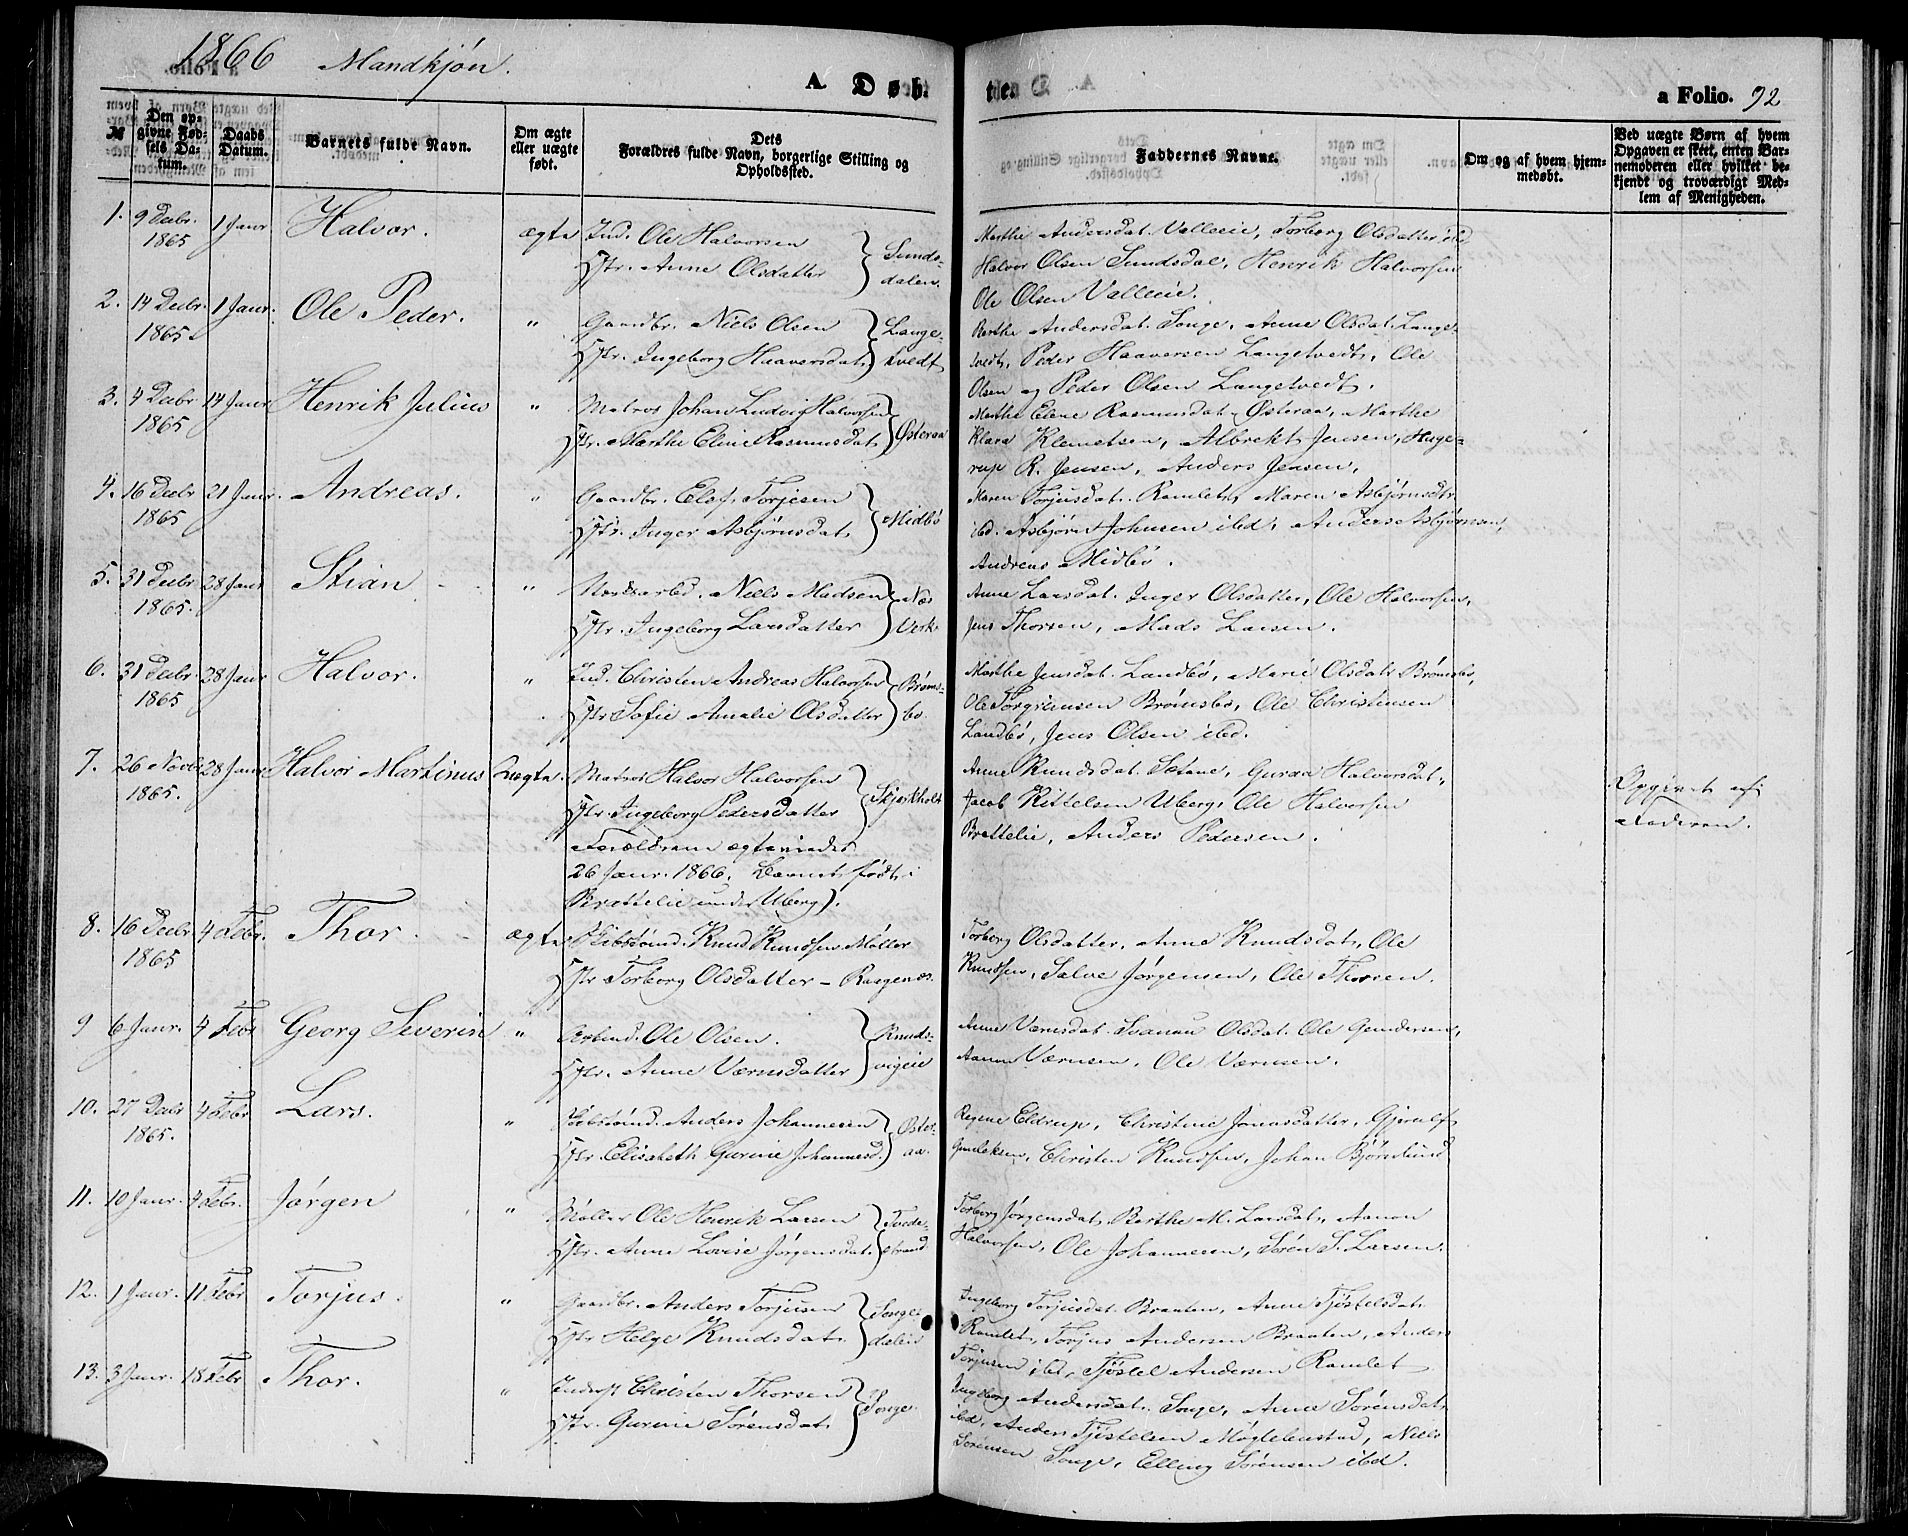 1866 Mandkjön.
A Døb- te. a Folio. 92
№ Den opgivne Fødsels Datum. Daabs Datum. Barnets fulde Navn. Om ægte eller uægte født. Dets Forældres fulde Navn, borgerlige Stilling og Opholdssted. Faddernes Navne. Om og af hvem hjemmedøbt. Ved uægte Børn af hvem Opgaven er skeet, enten Barnemoderen eller hvilket bekjendt og troværdigt Medlem af Menigheden.
1. 9 Decbr. 1865 1 Janr Halvor. ægte Ind. Ole Halvorsen
Hstr. Anne Olsdatter } Sundsdalen.
Marthe Andersdat. Valleeie, Torborg Olsdatter ibd
Halvor Olsen Sundsdal, Henrik Halvorsen
Ole Olsen Valleeie.
2. 14 Decbr. 1865. 1 Janr. Ole Peder. " Gaardbr. Niels Olsen
Hstr. Ingeborg Haaversdat. } Langetvedt
Berthe Andersdat. Songe, Anne Olsdat. Langetvedt, Peder Haaversen Langetvedt, Ole
Olsen og Peder Olsen Langetvedt.
3. 4 Decbr 1865 14 Janr Henrik Julius " Matros Johan Ludvig Halvorsen
Hstr. Marthe Eline Rasmusdat. } Østeraa
Marthe Elene Rasmusdat. Østeraa, Marthe
Klara Klemetsen, Albrekt Jensen, Hagerup R. Jensen, Anders Jensen.
4. 16 Decbr 1865 21 Janr. Andreas. " Gaardbr. Elef Torjesen
Hstr. Inger Asbjørnsdat. } Midbø
Maren Torjusdat. Ramlet, Maren Asbjørnsdtr.
ibd. Asbjørn Johnsen ibd, Anders Asbjørnsen,
Andreas Midbø.
5. 31 Decbr 1865. 28 Janr Stian " Værksarbd. Niels Madsen
Hstr. Ingeborg Larsdatter } Næs Verk.
Anne Larsdat. Inger Olsdatter, Ole Halvorsen,
Jens Thorsen, Mads Larsen.
6. 31 Decbr 1865 28 Janr Halvor. " Ind. Christen Andreas Halvorsen
Hstr Sofie Amalie Olsdatter } Brømsbo.
Marthe Jensdat. Landbø, Marie Olsdatr Brømsbo,
Ole Torgrimsen Brømsbo, Ole Christensen
Landbø, Jens Olsen ibd.
7. 26 Novbr 1865. 28 Janr Halvor Martinus Uægte. Matros Halvor Halvorsen
Hstr. Ingeborg Pedersdatter } Skjerkholt
Forældrene ægteviedes
26 Janr. 1866. Barnet født i
Brattelie under Uberg).
Anne Knudsdat. Sætane, Guraa Halvorsdat.,
Jacob Kittelsen Uberg, Ole Halvorsen
Brattelie, Anders Pedersen.
Opgivet af Faderen.
8. 16 Decbr 1865 4 Febr. Thor. ægte Skibstømd. Knud Knudsen Møller
Hstr Torborg Olsdatter - Raagenæs.
Torborg Olsdatter, Anne Knudsdat., Ole
Knudsen, Salve Jørgensen, Ole Thorsen.
9 6 Janr. 4 Febr Georg Severin " Arbmd. Ole Olsen.
Hstr. Anne Værnsdatter } Knudsvigeie
Anne Værnsdat. Svanau Olsdat. Ole Gundersen,
Aanon Værnsen, Ole Værnsen.
10. 27 Decbr 1865. 4 Febr Lars. " Skibstømd. Anders Johannesen
Hstr Elisabeth Gurine Johannesd. } Østeraa.
Regene Eldrup, Christine Jonasdatter, Gjerulf
Gunleksen, Christen Knudsen, Johan Bjørnlund
11. 10 Janr. 4 Febr. Jørgen " Møller Ole Henrik Larsen
Hstr. Anne Lovise Jørgensdat. } Tvedestrand
Torborg Jørgensdat. Berthe M. Larsdat., Aanon
Halvorsen, Ole Johannesen, Søren S. Larsen.
12. 1 Janr. 11 Febr Torjus. " Gaardbr. Anders Torjusen
Hstr Helge Knudsdat. } Songedalen
Ingeborg Torjusdat. Braaten, Anne Tjøstelsdat.
Ramlet, Torjus Andersen Braaten, Anders
Torjusen ibd, Tjøstel Andersen Ramlet
13. 3 Janr. 18 Febr Thor. " Inderst Christen Thorsen
Hstr. Gurine Sørensdat. } Songe.
Ingeborg Andersdat. Songe, Anne Sørensdat.
ibd, Anders Tjøstelsen Møglebustad, Niels
Sørensen Songe, Elling Sørensen ibd.